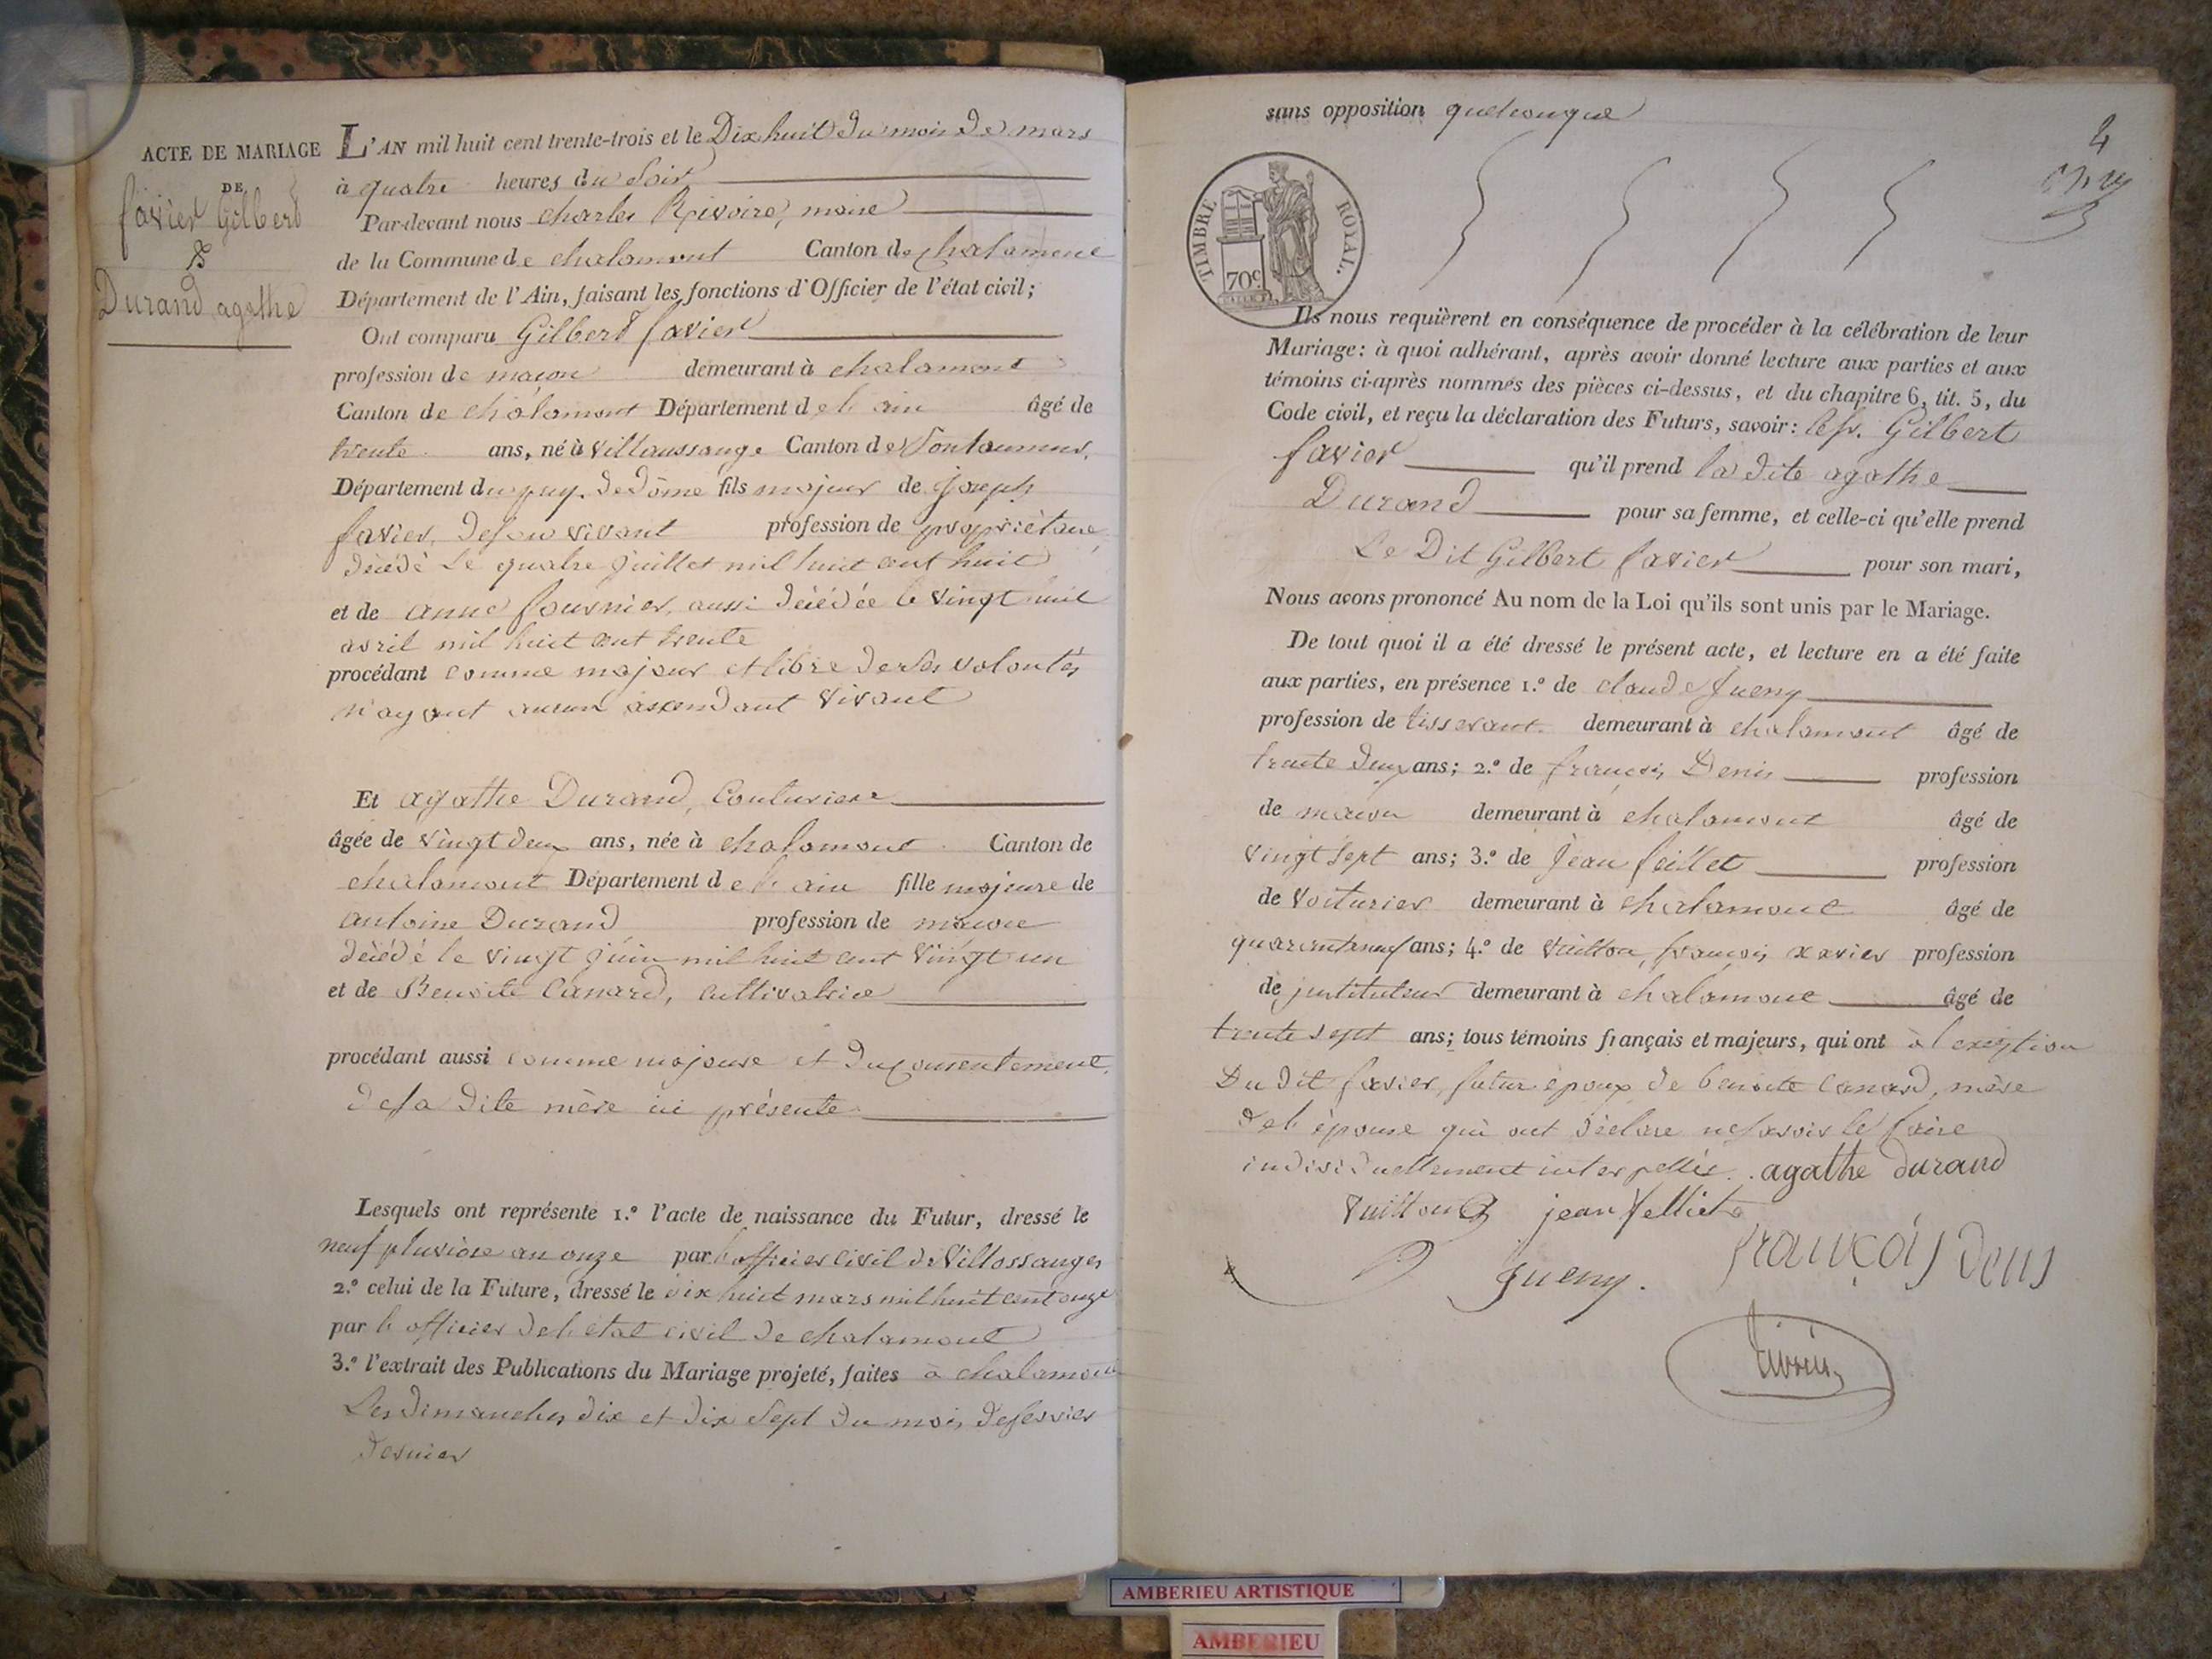 ACTE DE MARIAGE
DE
favier Gilbert
&
Durand agathe
L'AN mil huit cent trente-trois et le Dix huit du mois de mars
à quatre heures du soir
Par-devant nous charles Rivoire, maire
de la Commune de chalamont Canton de chalamont
Département de l'Ain, faisant les fonctions d'Officier de l'état civil;
Ont comparu Gilbert favier
profession de maçon demeurant à chalamont
Canton de chalamont Département de l'ain âgé de
trente ans, né à Villaussange Canton de Pontaumur,
Département du puy de dôme fils majeur de joseph
favier, de son vivant profession de propriétaire,
décédé le quatre juillet mil huit cent huit
et de anne fournier, aussi décédée le vingt huit
avril mil huit cent trente
procédant comme majeur et libre de ses volontés
n'ayant aucun ascendant vivant
Et agathe Durand, Couturiere
âgée de vingt deux ans, née à chalamont Canton de
chalamont Département de l'ain fille majeure de
antoine Durand profession de maçon
décédé le vingt juin mil huit cent vingt un
et de Benoite Canard, cultivatrice
procédant aussi comme majeure et du consentement
de sa dite mère ici présente
Lesquels ont représenté 1.º l'acte de naissance du Futur, dressé le
neuf pluviose an onze par l'officier civil de Villossanges
2.º celui de la Future, dressé le dix huit mars mil huit cent onze
par l'officier de l'état civil de chalamont
3.º l'extrait des Publications du Mariage projeté, faites à chalamont
Les dimanches dix et dix sept du mois de fevrier
dernier
sans opposition quelconque
4
TIMBRE ROYAL.
70c
Ils nous requièrent en conséquence de procéder à la célébration de leur
Mariage: à quoi adhérant, après avoir donné lecture aux parties et aux
témoins ci-après nommés des pièces ci-dessus, et du chapitre 6, tit. 5, du
Code civil, et reçu la déclaration des Futurs, savoir: le sr. Gilbert
favier qu'il prend la dite agathe
Durand pour sa femme, et celle-ci qu'elle prend
Le Dit Gilbert favier pour son mari,
Nous avons prononcé Au nom de la Loi qu'ils sont unis par le Mariage.
De tout quoi il a été dressé le présent acte, et lecture en a été faite
aux parties, en présence 1.º de claude Jueny
profession de tisserant demeurant à chalamont âgé de
trente deux ans; 2.º de françois Denis profession
de maçon demeurant à chalamont âgé de
vingt sept ans; 3.º de Jean feillet profession
de voiturier demeurant à chalamont âgé de
quarante neuf ans; 4.º de Vuitton, françois xavier profession
de jnstituteur demeurant à chalamont âgé de
trente sept ans; tous témoins français et majeurs, qui ont à l'exception
Du dit favier, futur époux, de benoite Canard, mère
de l'épouse qui ont déclaré ne savoir le faire
individuellement interpellés. agathe durand
Vuitton jean felliet
Jueny. françois denis
AMBERIEU ARTISTIQUE
AMBERIEU